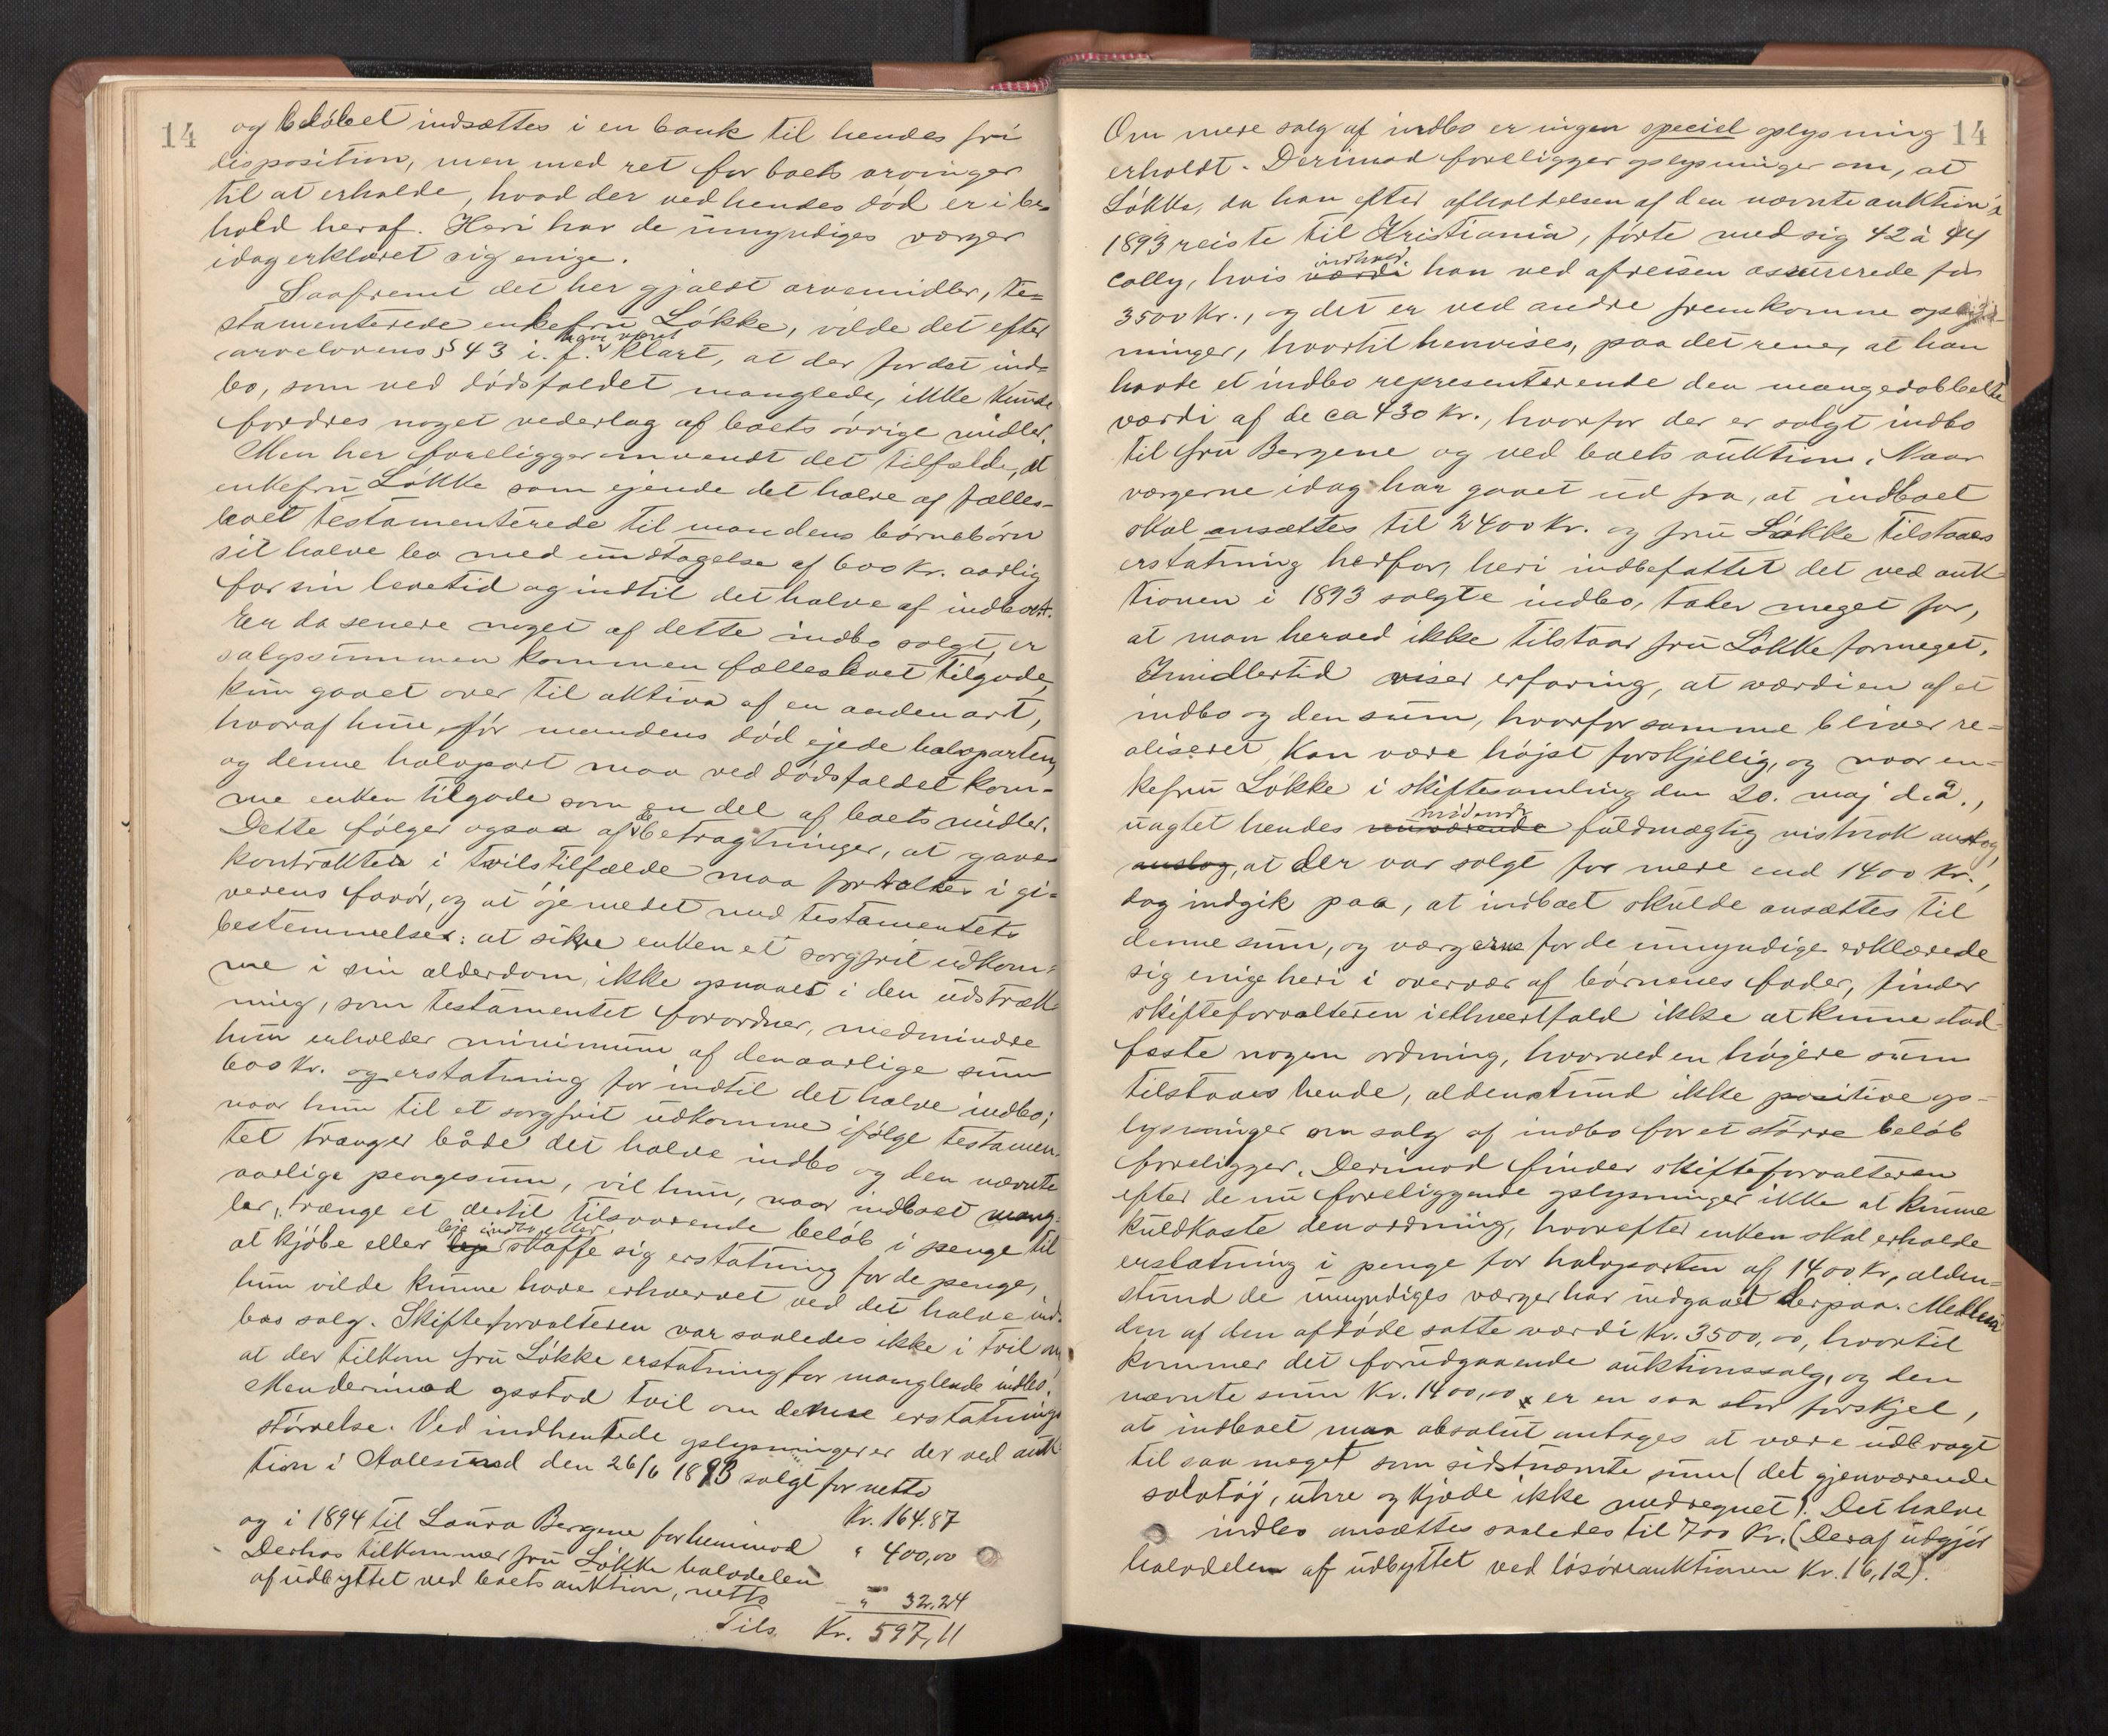 14
og beløbet indsættes i en bank til hendes fri
disposition, men med ret for boets arvinger
til at erholde, hvad der ved hendes død er i be=
hold heraf. Heri har de umyndiges værger
idag erklæret sig enige.
Saafremt det her gjaldt arvemidler, te=
stamenterede enkefru Løkke, vilde det efter
arvelovens § 43 i. f. have været klart, at der for det ind=
bo, som ved dødsfaldet manglede, ikke kunde
fordres noget vederlag af boets øvrige midler.
Men her foreligger omvendt det tilfælde, at
enkefru Løkke som ejende det halve af fælles-
boet testamenterede til mandens børnebørn
sit halve bo med undtagelse af 600 kr. aarlig
for sin levetid og indtil det halve af indboet.
Er da senere noget af dette indbo solgt, er
salgssummen kommen fællesboet tilgode,
kun gaaet over til aktiva af en anden art,
hvoraf hun før mandens død ejede halvparten,
og denne halvpart maa ved dødsfaldet kom-
me enken tilgode som en del af boets midler.
Dette følger ogsaa af de betragtninger, at gave-
kontrakter i tvilstilfælde maa fortolkes i gi=
verens favør, og at øjemedet med testamentets
bestemmelser: at sikre enken et sorgfrit udkom=
me i sin alderdom, ikke opnaaes i den udstræk-
ning, som testamentet forordner, medmindre
hun erholder minimum af den aarlige sum
600 kr. og erstatning for indtil det halve indbo;
naar hun til et sorgfrit udkomme ifølge testamen-
tet trænger både det halve indbo og den nævnte
aarlige pengesum, vil hun, naar indboet mang-
ler, trænge et dertil tilsvarende beløb i penge til
at kjøbe eller leje indbo eller skaffe sig erstatning for de penge,
hun vilde kunne have erhvervet ved det halve ind-
bos salg. Skifteforvalteren var saaledes ikke i tvil om
at der tilkom fru Løkke erstatning for manglende indbo.
Men derimod opstod tvil om denne erstatnings
størrelse. Ved indhentede oplysninger er der ved auk-
tion i Aalesund den 26/6 1893 solgt for netto
Kr. 164.87
og i 1894 til Laura Bergene for henimod " 400,00
Derhos tilkommer fru Løkke halvdelen
af udbyttet ved boets auktion, netto - " 32.24
Tils. Kr. 597,11
14
Om mere salg af indbo er ingen speciel oplysning
erholdt. Derimod foreligger oplysninger om, at
Løkke, da han efter afholdelsen af den nævnte auktion i
1893 reiste til Kristiania, førte med sig 42 à 44
colly, hvis værdi indhold han ved afreisen assurerede for
3500 Kr., og det er ved andre fremkomne oplys-
ninger, hvortil henvises, paa det rene, at han
havde et indbo representerende den mangedobbelte
værdi af de ca 430 kr., hvorfor der er solgt indbo
til fru Bergene og ved boets auktion. Naar
værgerne idag har gaaet ud fra, at indboet
skal ansættes til 2400 kr. og fru Løkke tilstaaes
erstatning herfor, heri indbefattet det ved auk-
tionen i 1893 solgte indbo, taler meget for,
at man herved ikke tilstaar fru Løkke formeget.
Imidlertid viser erfaring, at værdien af et
indbo og den sum, hvorfor samme bliver re=
aliseret kan være højst forskjellig, og naar en=
kefru Løkke i skiftesamling den 20. maj d.å.,
uagtet hendes nuværende mødende fuldmægtig vistnok antog,
antog, at der var solgt for mere end 1400 kr.,
dog indgik paa, at indboet skulde ansættes til
denne sum, og værgerne for de umyndige erklærede
sig enige heri i overvær af børnenes fader, finder
skifteforvalteren iethvertfald ikke at kunne stad-
fæste nogen ordning, hvorved en højere sum
tilstaaes hende, aldenstund ikke positive op-
lysninger om salg af indbo for et større beløb
foreligger. Derimod finder skifteforvalteren
efter de nu foreliggende oplysninger ikke at kunne
kuldkaste den ordning, hvorefter enken skal erholde
erstatning i penge for halvparten af 1400 Kr, alden=
stund de umyndiges værger har indgaaet derpaa. Mellem
den af den afdøde satte værdi Kr. 3500,00, hvortil
kommer det forudgaaende auktionssalg, og den
nævnte sum Kr. 1400,00 er en saa stor forskjel,
at indboet maa absolut antages at være udbragt
til saa meget som sidstnævnte sum (det gjenværende
sølvtøj, uhre og kjæde ikke medregnet). Det halve
indbo ansættes saaledes til 700 Kr. (Deraf udgjør
halvdelen af udbyttet ved løsøreauktionen Kr. 16,12).